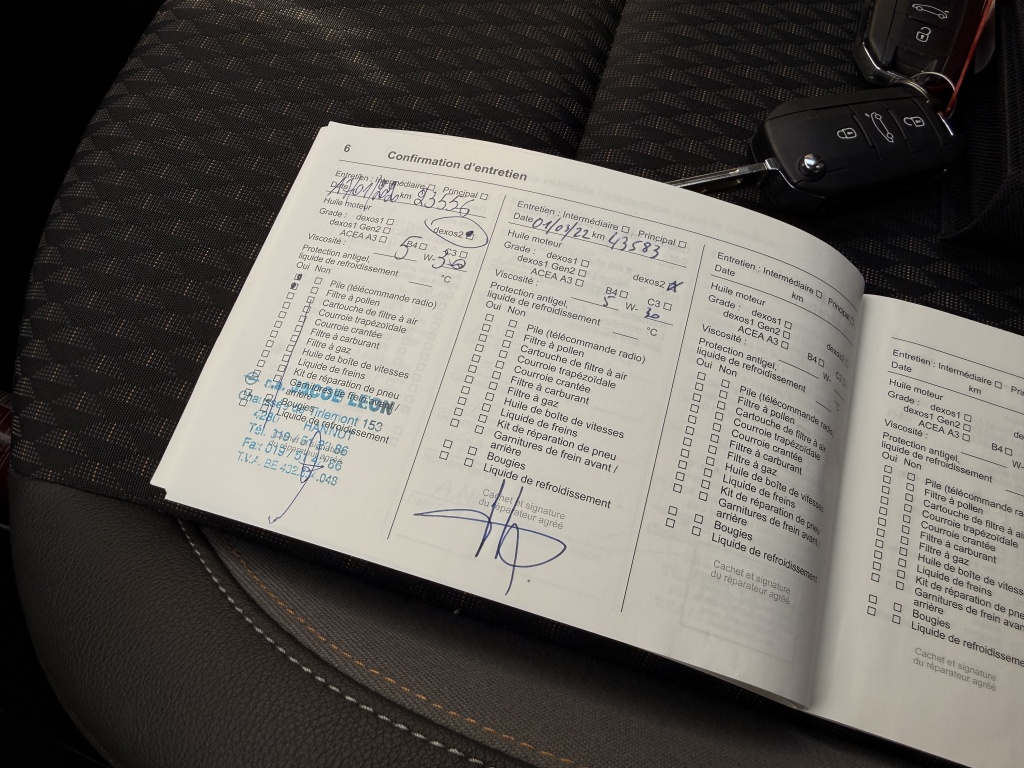 6 Confirmation d'entretien
Entretien : Intermédiaire Principal
Date km 23556
Huile moteur
Grade : dexos1 dexos2
dexos1 Gen2
ACEA A3 B4 C3
Viscosité : 5 W- 30
Protection antigel,
liquide de refroidissement °C
Oui Non
Pile (télécommande radio)
Filtre à pollen
Cartouche de filtre à air
Courroie trapézoïdale
Courroie crantée
Filtre à carburant
Filtre à gaz
Huile de boîte de vitesses
Liquide de freins
Kit de réparation de pneu
Garnitures de frein avant /
arrière
Bougies
Liquide de refroidissement
JACOB LEON
Tirlemont 153
HANNUT
Entretien : Intermédiaire Principal
Date 01/03/22 km 43583
Huile moteur
Grade : dexos1 dexos2
dexos1 Gen2
ACEA A3 B4 C3
Viscosité : 5 W- 30
Protection antigel,
liquide de refroidissement °C
Oui Non
Pile (télécommande radio)
Filtre à pollen
Cartouche de filtre à air
Courroie trapézoïdale
Courroie crantée
Filtre à carburant
Filtre à gaz
Huile de boîte de vitesses
Liquide de freins
Kit de réparation de pneu
Garnitures de frein avant /
arrière
Bougies
Liquide de refroidissement
Cachet et signature
du réparateur agréé
Entretien : Intermédiaire Principal
Date km
Huile moteur
Grade : dexos1
dexos1 Gen2
ACEA A3 B4
Viscosité : W-
Protection antigel,
liquide de refroidissement
Oui Non
Pile (télécommande radio)
Filtre à pollen
Cartouche de filtre à air
Courroie trapézoïdale
Courroie crantée
Filtre à carburant
Filtre à gaz
Huile de boîte de vitesses
Liquide de freins
Kit de réparation de pneu
Garnitures de frein avant
arrière
Bougies
Liquide de refroidissement
Cachet et signature
du réparateur agréé
Entretien : Intermédiaire
Date km
Huile moteur
Grade : dexos1
dexos1 Gen2
ACEA A3 B4
Viscosité : W-
Protection antigel,
liquide de refroidissement
Oui Non
Pile (télécommande
Filtre à pollen
Cartouche de filtre à air
Courroie trapézoïdale
Courroie crantée
Filtre à carburant
Filtre à gaz
Huile de boîte de vitesses
Liquide de freins
Kit de réparation de pneu
Garnitures de frein avant
arrière
Bougies
Liquide de refroidissement
Cachet et signature
du réparateur agréé